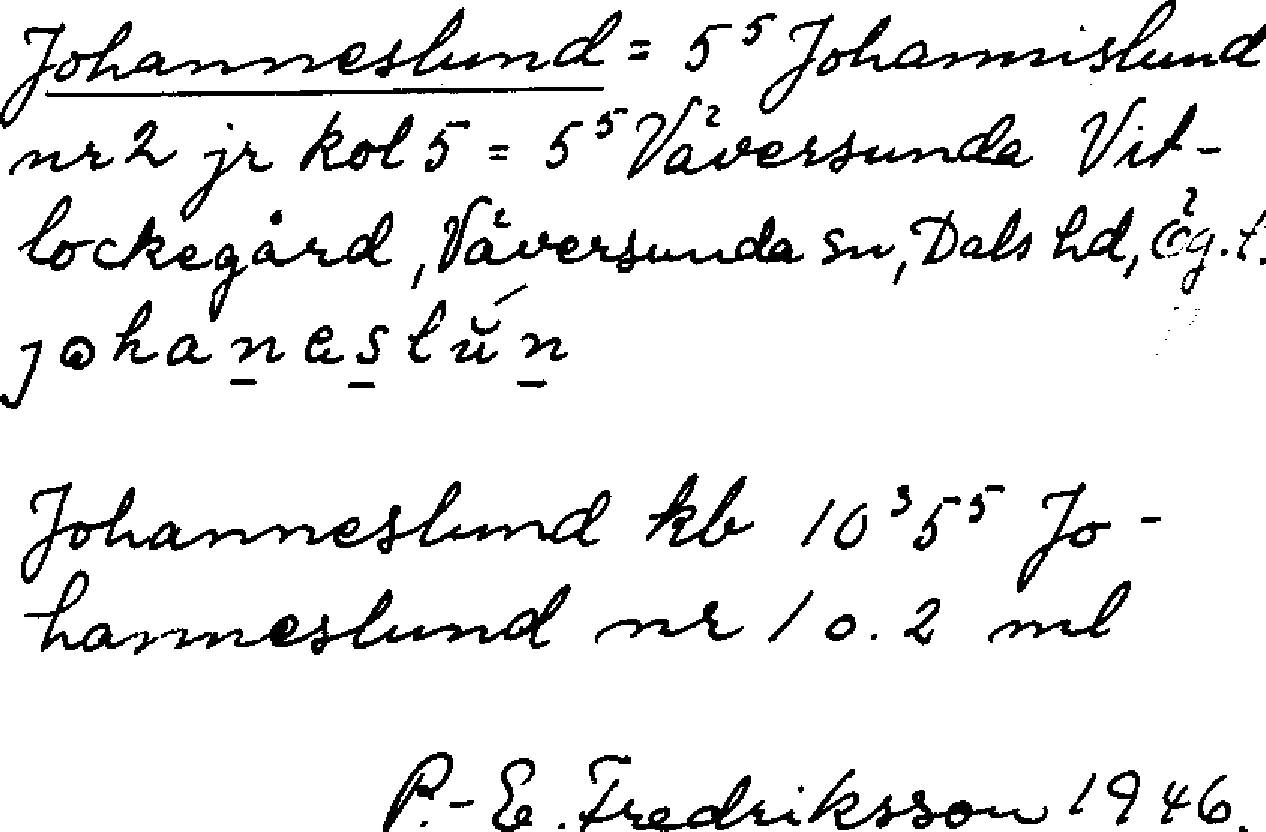 Johanneslund = 5⁵ Johannislund
nr 2 jr kol 5 = 5⁵ Väversunda Vit-
lockegård, Väversunda sn, Dals hd, Ög. l.
johaneslŭ́n
Johanneslund kb 10³ 5⁵ Jo-
hanneslund nr 1 o. 2 ml
P.-E. Fredriksson 1946.